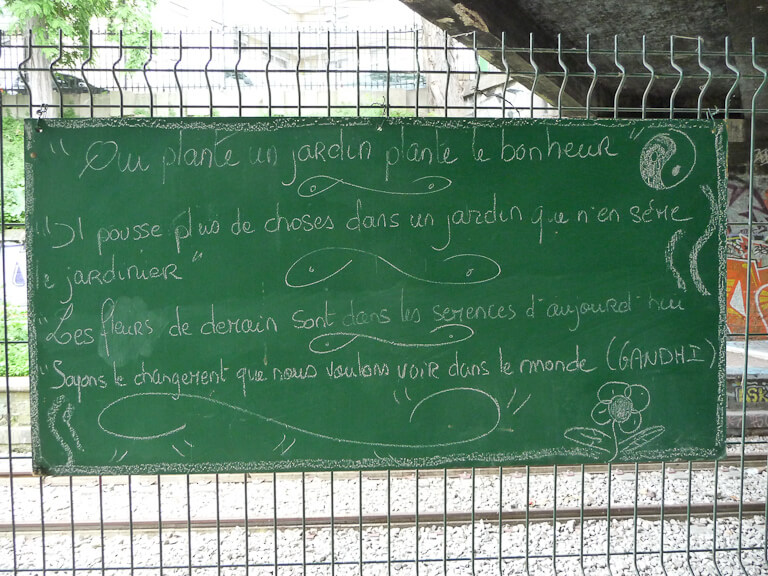 " Qui plante un jardin plante le bonheur "
" Il pousse plus de choses dans un jardin qu'n'en sème
le jardinier "
" Les fleurs de demain sont dans les semences d'aujourd'hui
" Soyons le changement que nous voulons voir dans le monde (GANDHI)